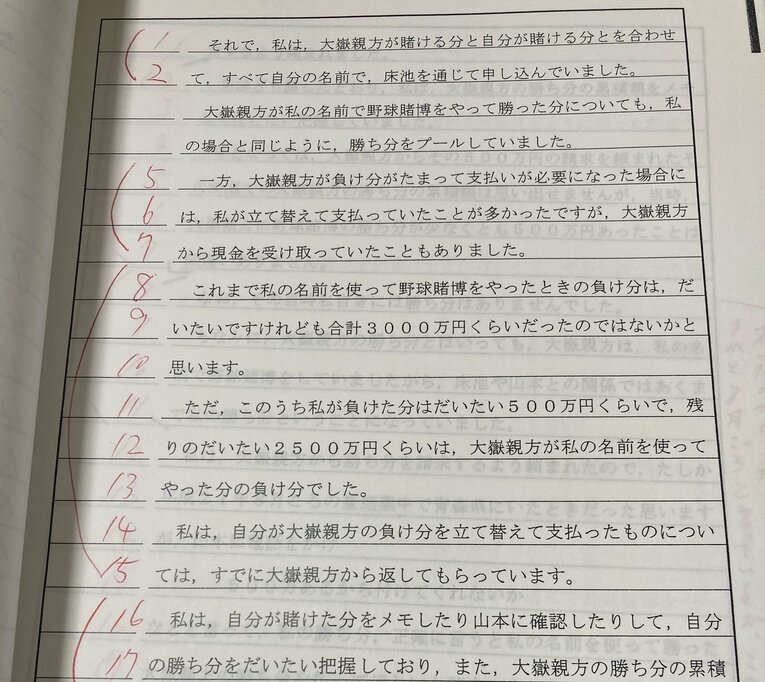 1 それで，私は，大嶽親方が賭ける分と自分が賭ける分とを合わせ
2 て，すべて自分の名前で，床池を通じて申し込んでいました。
大嶽親方が私の名前で野球賭博をやって勝った分についても，私
の場合と同じように，勝ち分をプールしていました。
5 一方，大嶽親方が負け分がたまって支払いが必要になった場合に
6 は，私が立て替えて支払っていたことが多かったですが，大嶽親方
7 から現金を受け取っていたこともありました。
8 これまで私の名前を使って野球賭博をやったときの負け分は，だ
9 いたいですけれども合計３０００万円くらいだったのではないかと
10 思います。
11 ただ，このうち私が負けた分はだいたい５００万円くらいで，残
12 りのだいたい２５００万円くらいは，大嶽親方が私の名前を使って
13 やった分の負け分でした。
14 私は，自分が大嶽親方の負け分を立て替えて支払ったものについ
15 ては，すでに大嶽親方から返してもらっています。
16 私は，自分が賭けた分をメモしたり山本に確認したりして，自分
17 の勝ち分をだいたい把握しており，また，大嶽親方の勝ち分の累積